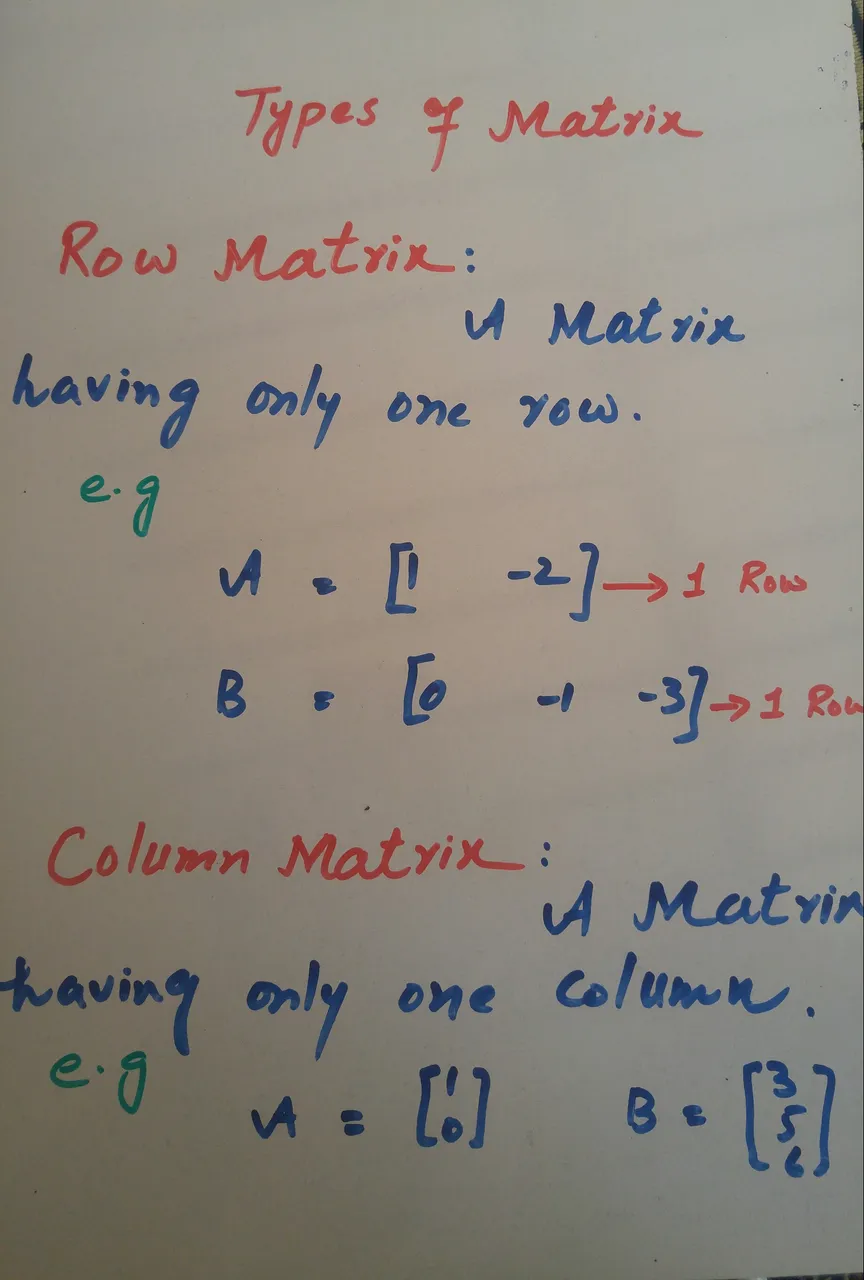 Types of Matrix
Row Matrix:
A Matrix
having only one row.
e.g
A = [1 -2] → 1 Row
B = [0 -1 -3] → 1 Row
Column Matrix:
A Matrix
having only one column.
e.g
A = [1 0] B = [3 5 6]